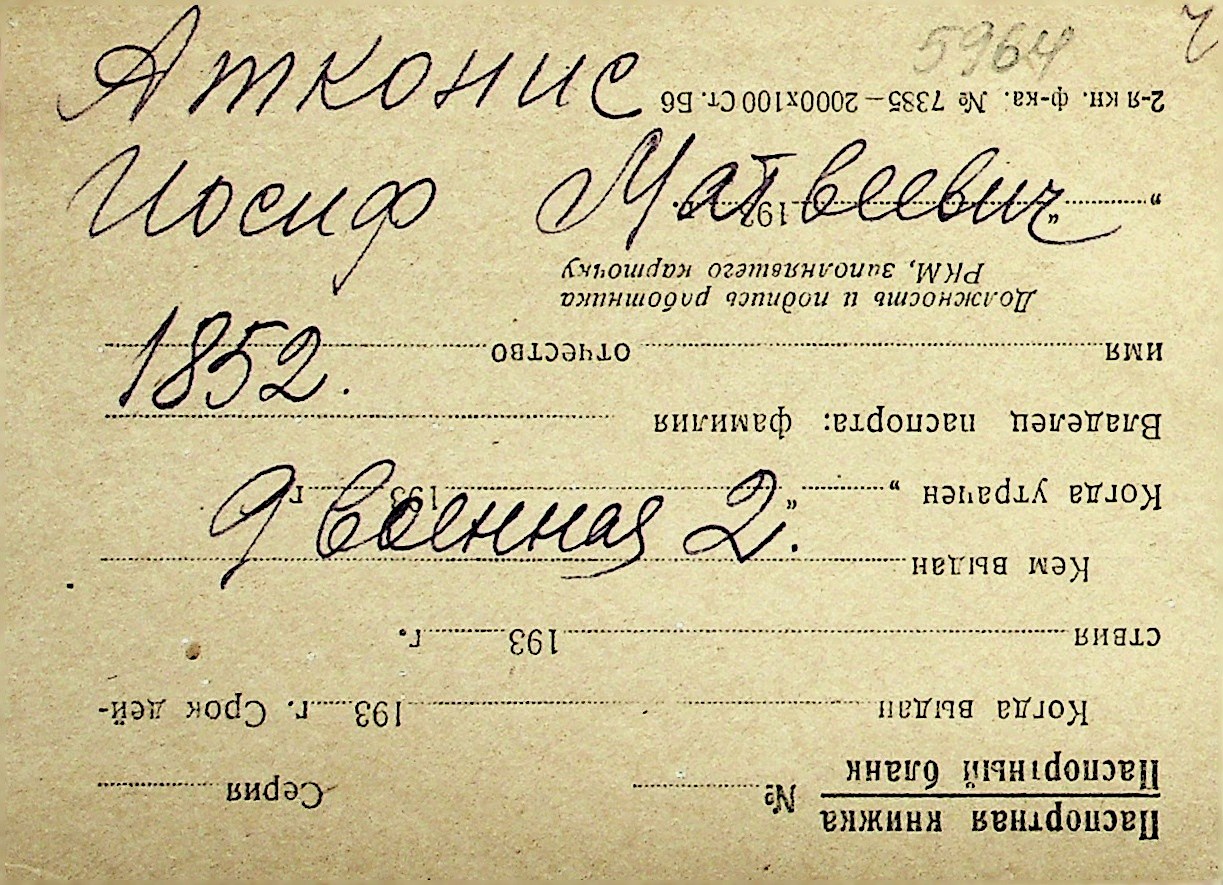 5964
Атконис
Иосиф Матвеевич
1852.
9 Военная 2.
Паспортная книжка
Паспортный бланк № Серия
Когда выдан 193 г. Срок дей-
ствия 193 г.
Кем выдан
Когда утрачен „ “ 193 г.
Владелец паспорта: фамилия
имя отчество
Должность и подпись работника
РКМ, заполнявшего карточку
„ “ 193 г.
2-я кн. ф-ка. № 7385—2000х100 Ст. Б6